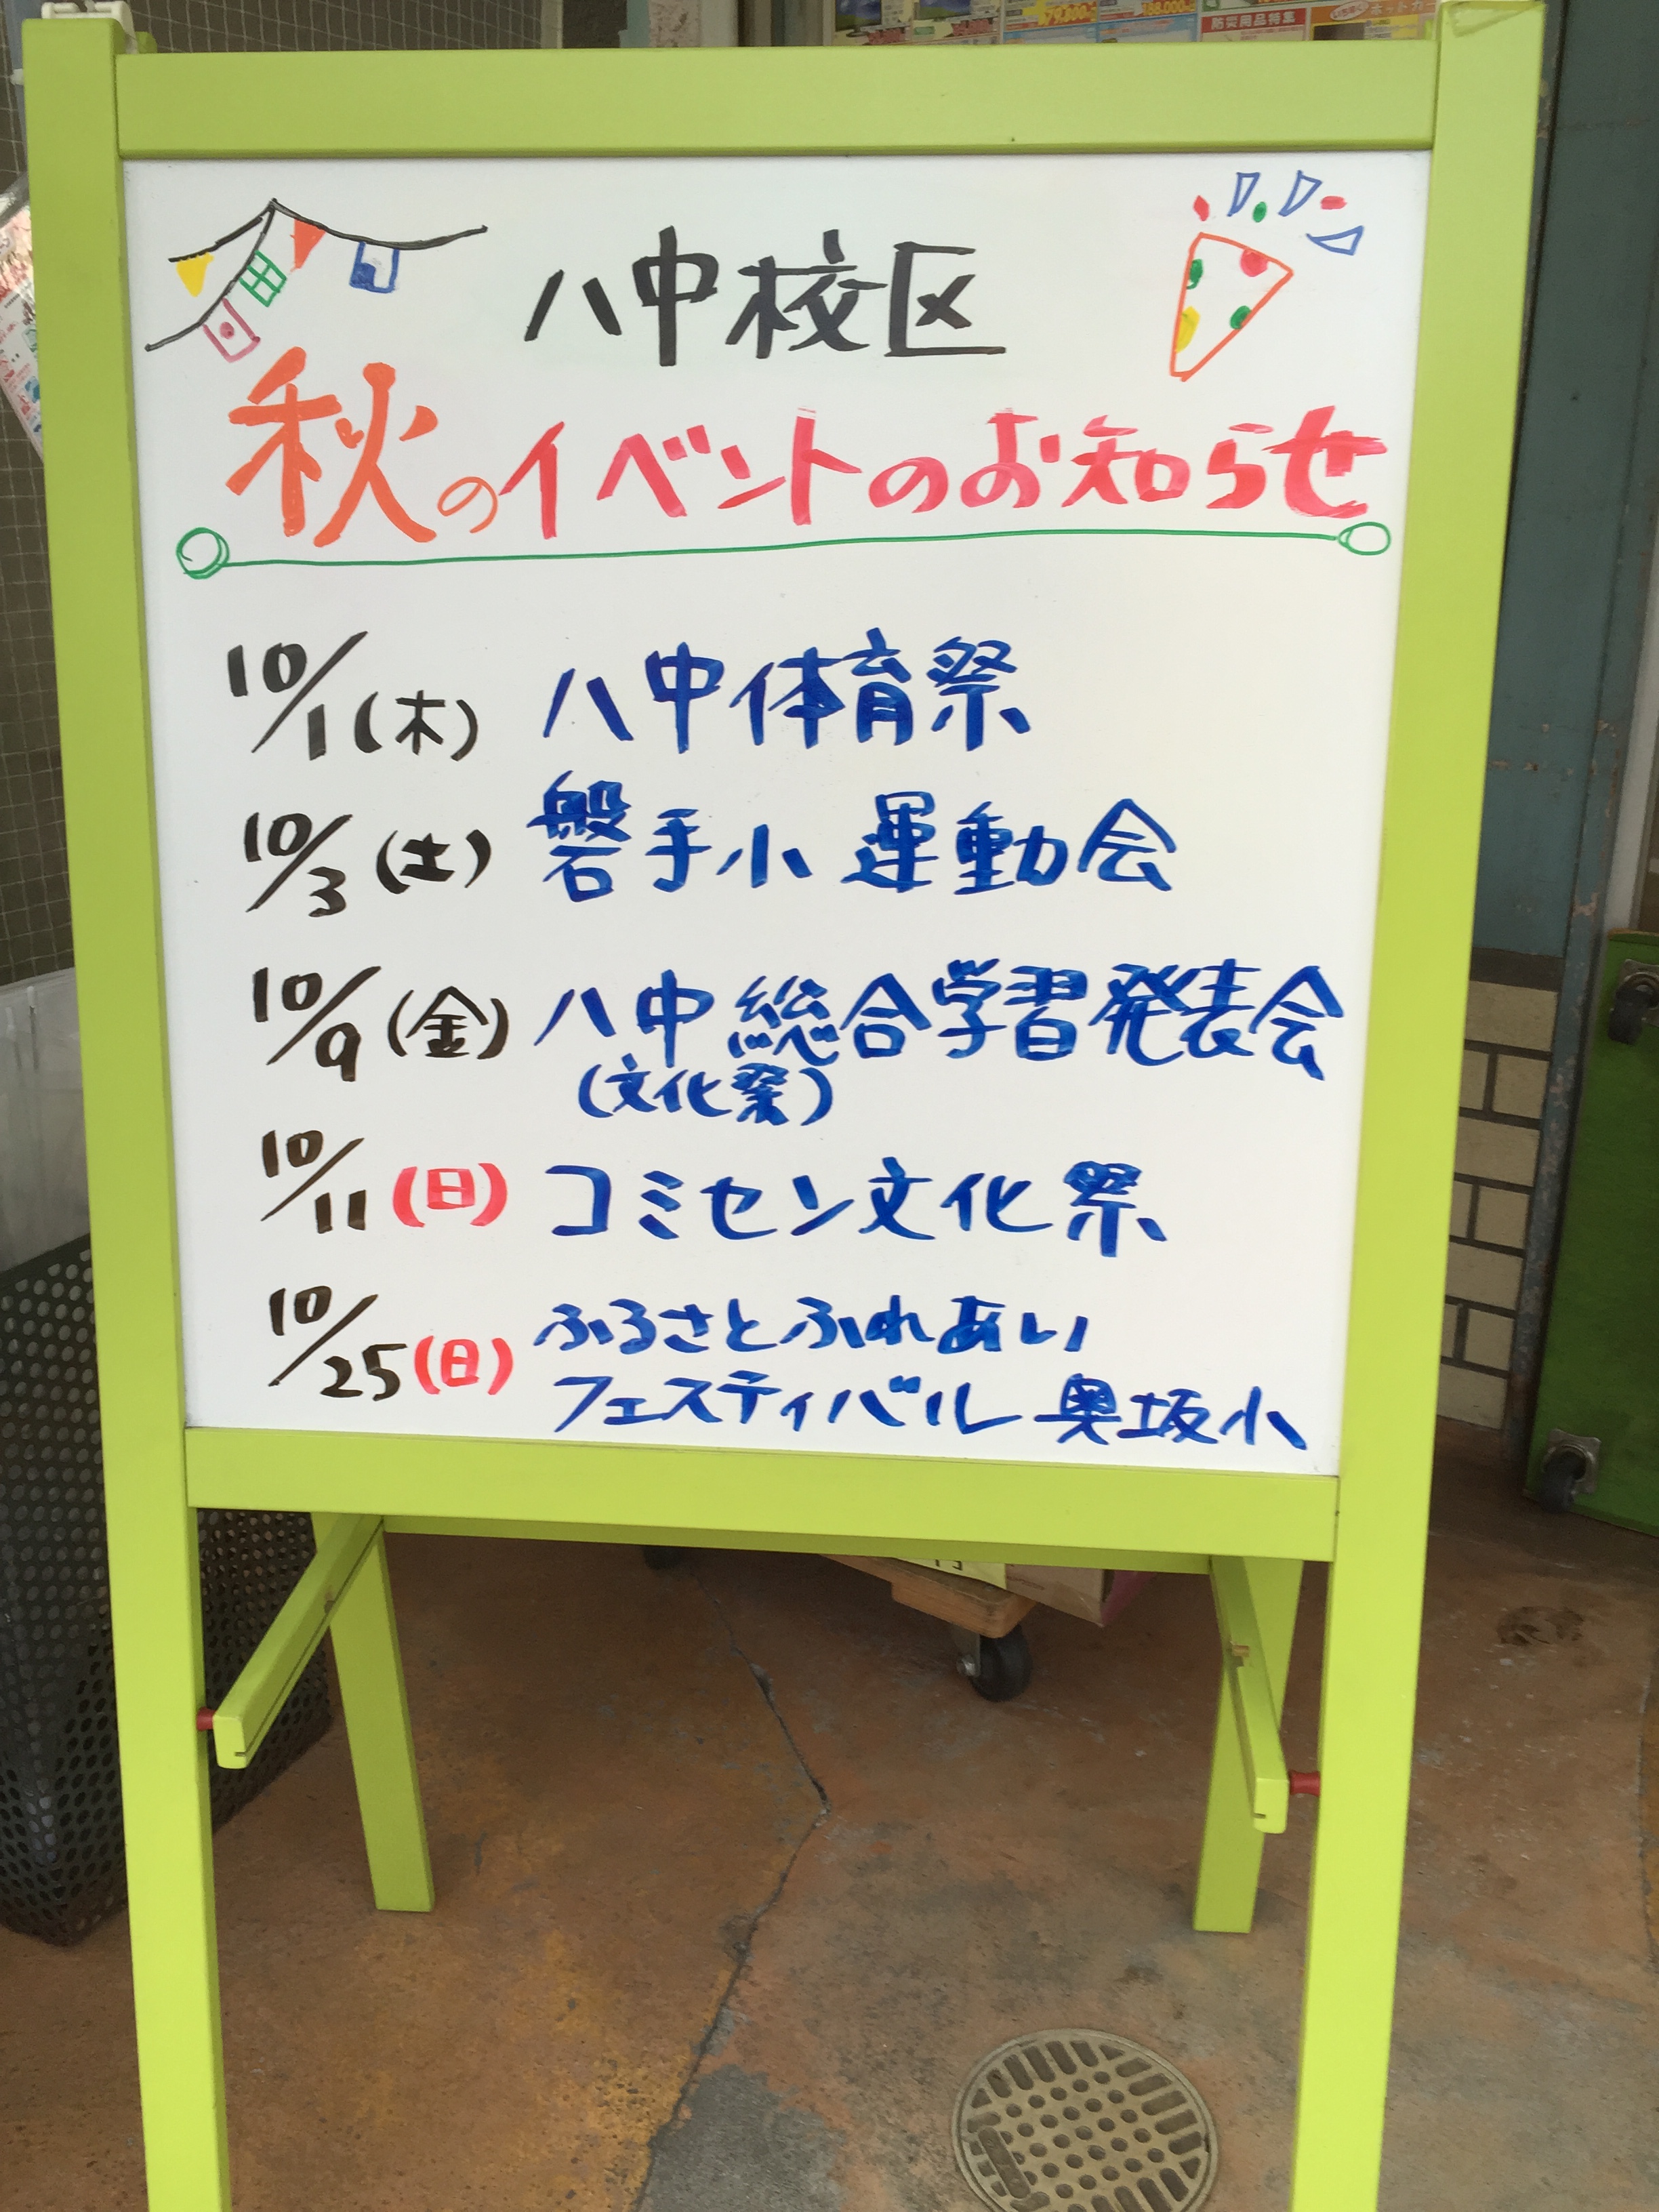 防災用品特集
八中校区
秋のイベントのお知らせ
10/1(木) 八中体育祭
10/3(土) 磐手小 運動会
10/9(金) 八中 総合学習発表会
(文化祭)
10/11(日) コミセン文化祭
10/25(日) ふるさとふれあい
フェスティバル 奥坂小